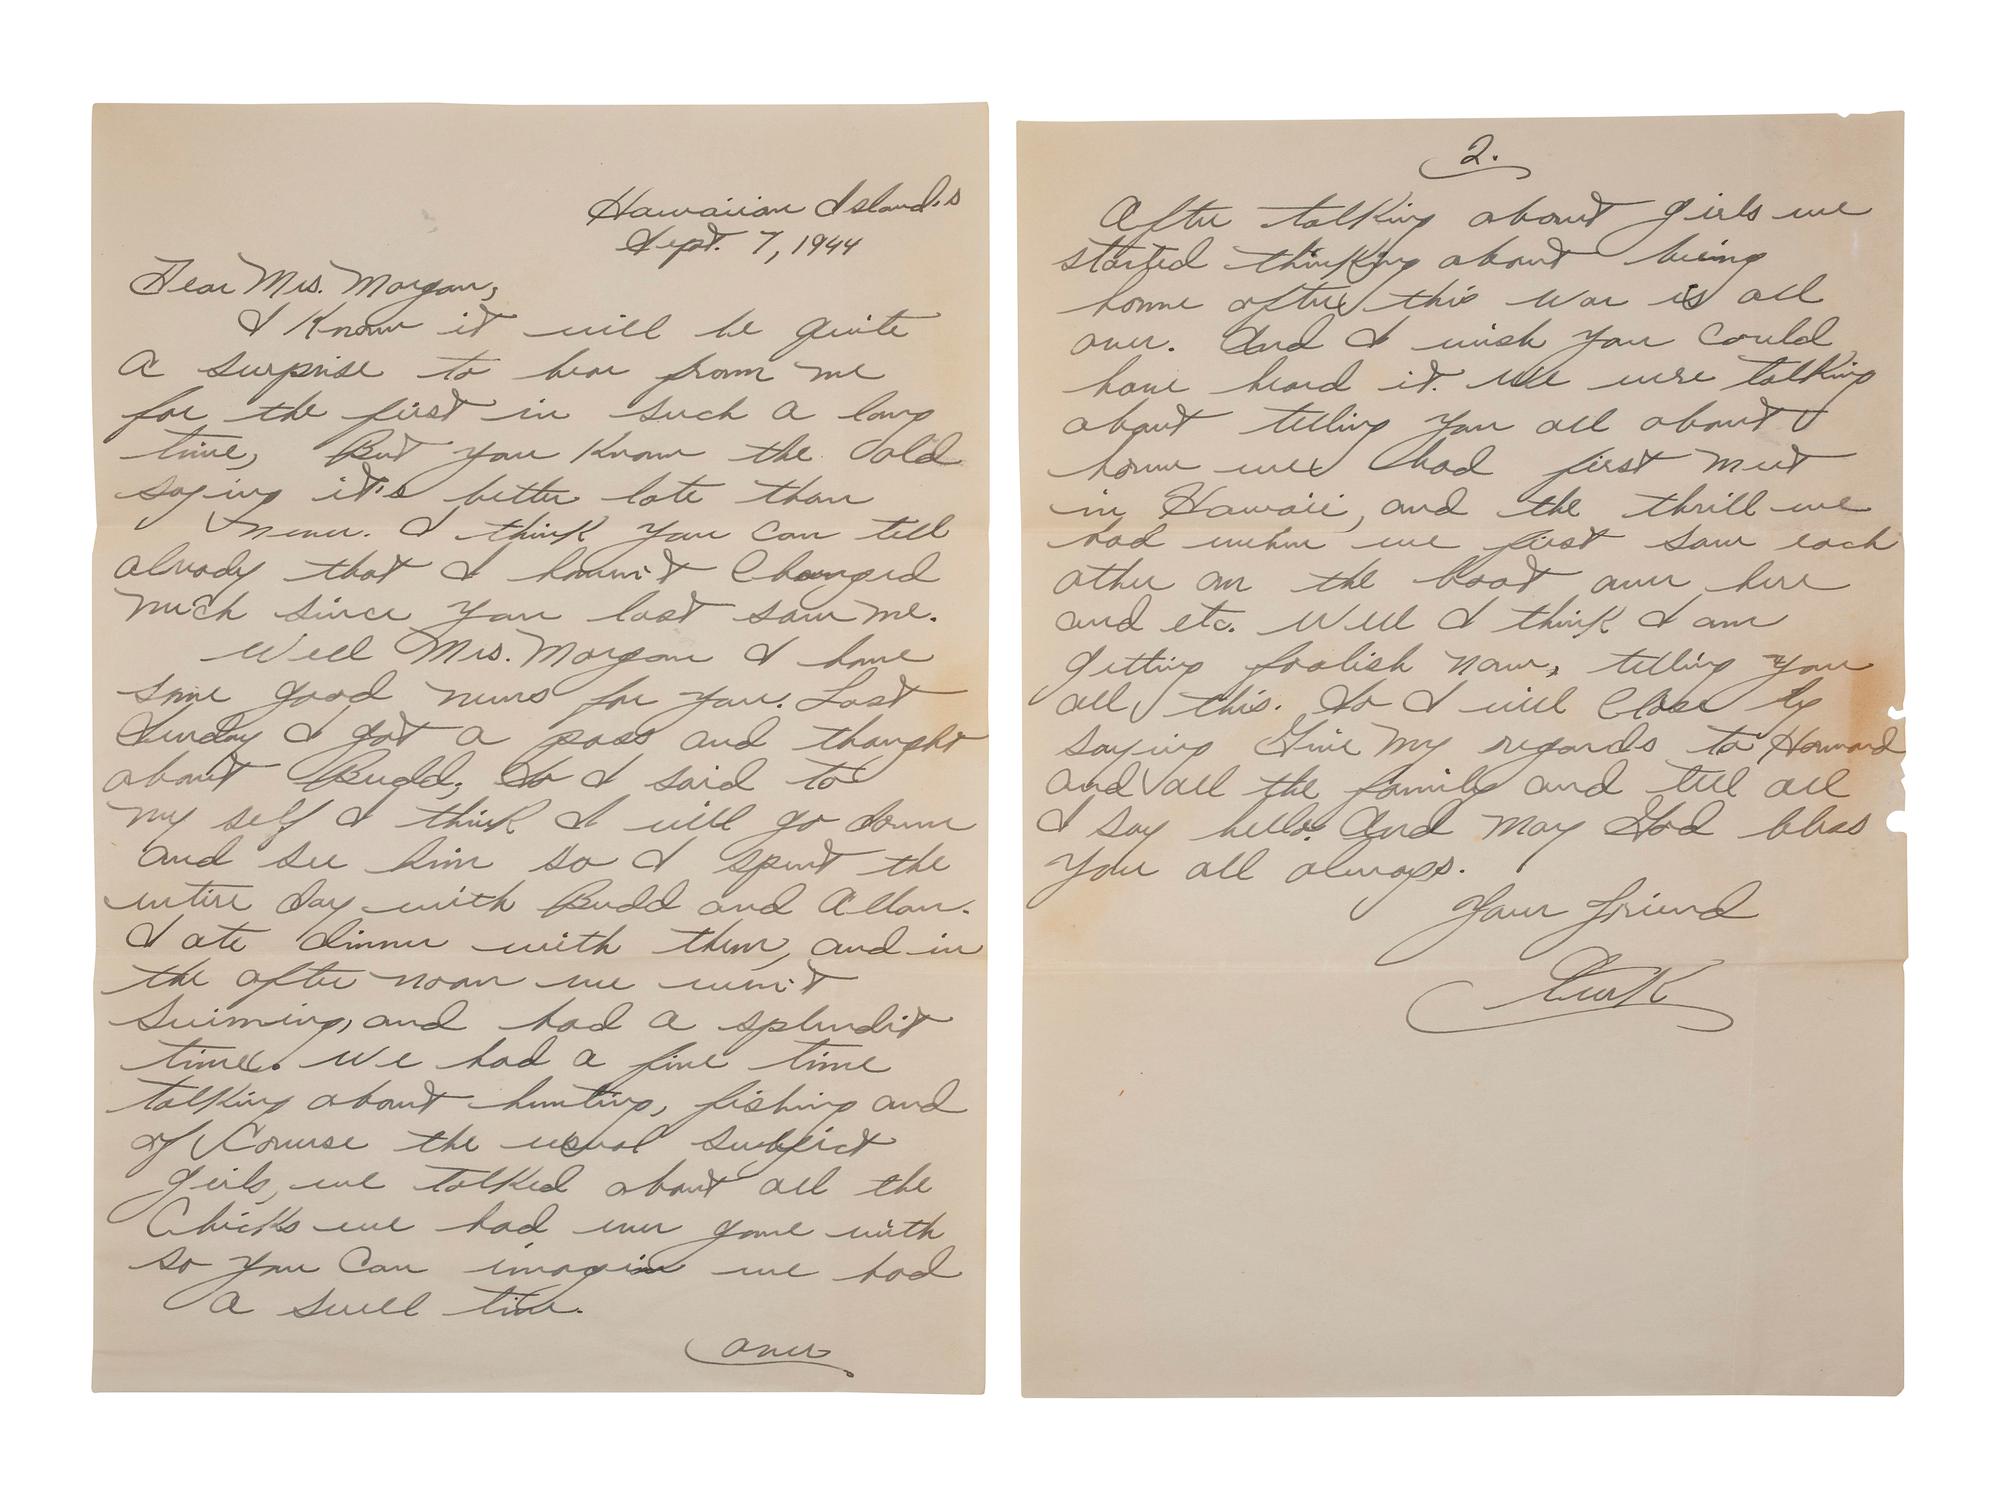 Hawaiian Island.s
Sept. 7, 1944
Dear Mrs. Morgan,
I Know it will be quite
a surprise to hear from me
for the first in such a long
time, But you Know the old
saying it's better late than
never. I think you can tell
already that I haven't Changed
much since you last saw me.
Well Mrs. Morgan I have
some good news for you. Last
Sunday I got a pass and thought
about Budd, So I said to
my self I think I will go down
and see him so I spent the
entire day with Budd and Allan.
I ate dinner with them, and in
the after noon we went
swiming, and had a splendit
time. We had a fine time
talking about hunting, fishing and
of Course the usual subject
girls, we talked about all the
Chicks we had ever gone with
so you Can imagin we had
a swell time.
over
2.
After talking about girls we
started thinking about being
home after this war is all
over. And I wish you Could
have heard it. We were talking
about telling you all about
how we had first meet
in Hawaii, and the thrill we
had when we first saw each
other on the boat over here
and etc. Well I think I am
getting foolish now, telling you
all this. So I will Close by
saying Give my regards to Howard
and all the family and tell all
I say hello. And may God bless
you all always.
Your friend
Turk